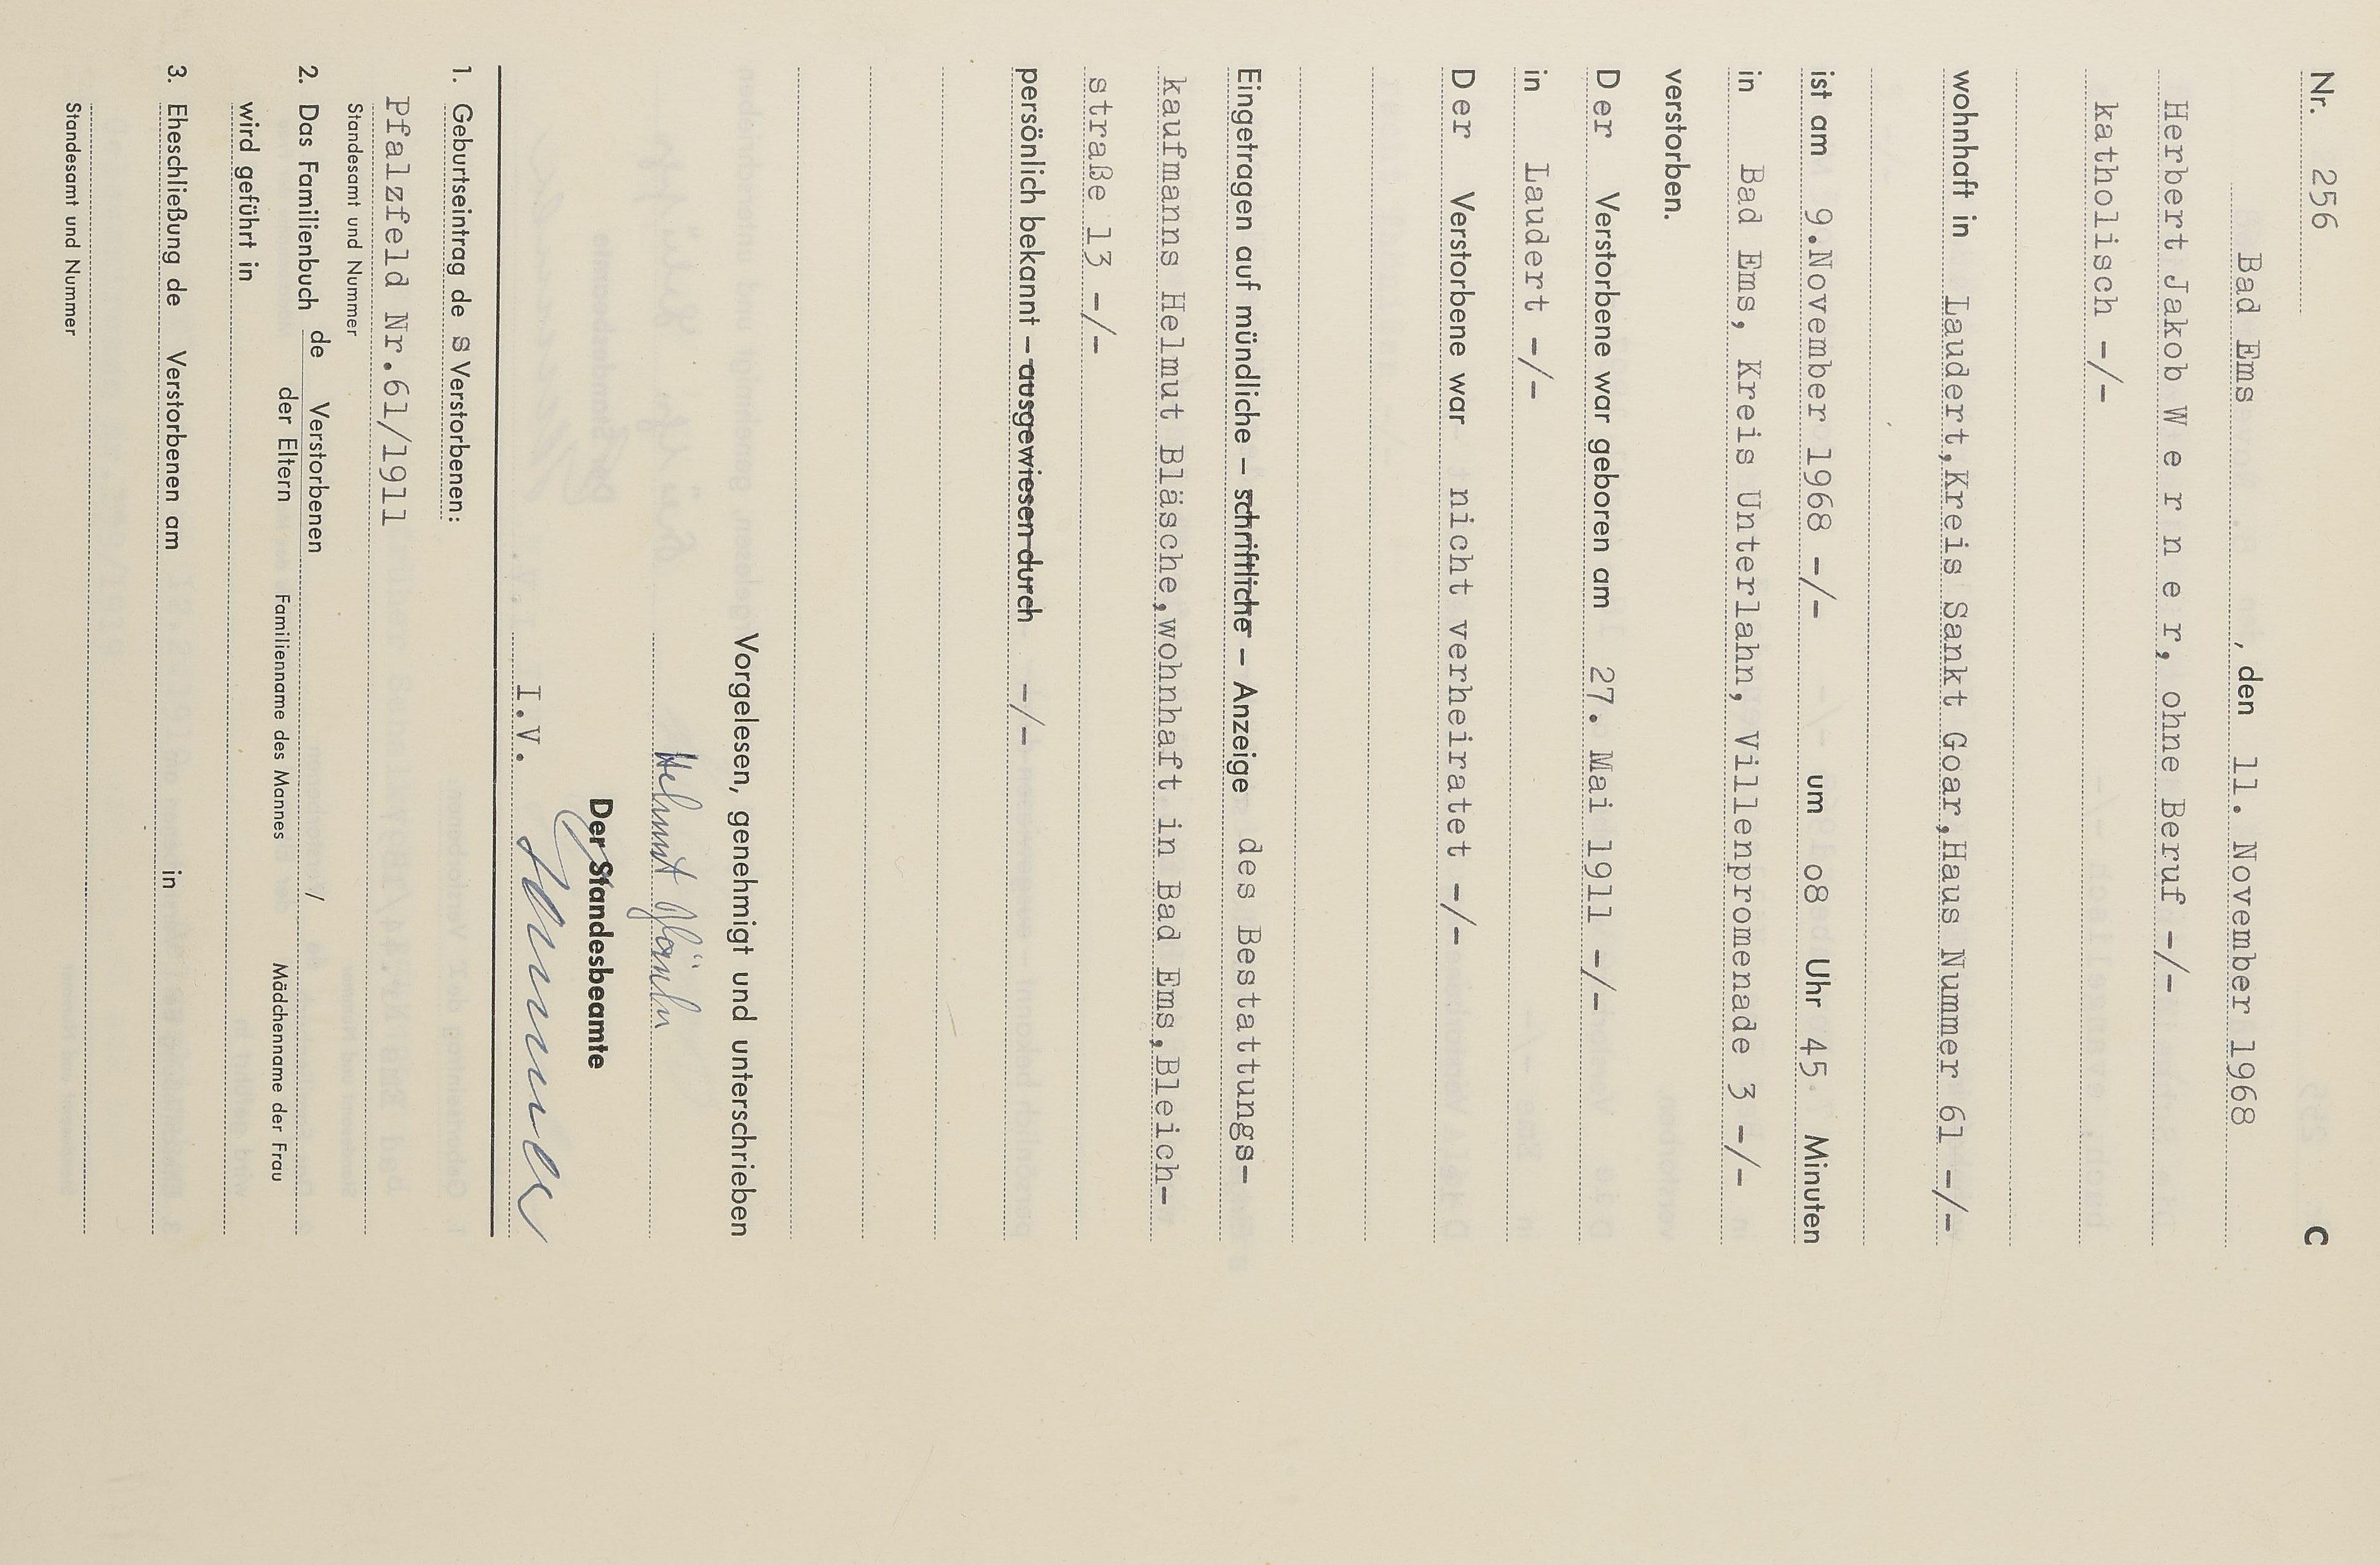 Nr. 256 C
Bad Ems , den 11. November 1968
Herbert Jakob W e r n e r, ohne Beruf -/-
katholisch -/-
wohnhaft in Laudert,Kreis Sankt Goar,Haus Nummer 61 -/-
ist am 9.November 1968 -/- um o8 Uhr 45 Minuten
in Bad Ems, Kreis Unterlahn, Villenpromenade 3 -/-
verstorben.
Der Verstorbene war geboren am 27. Mai 1911 -/-
in Laudert -/-
Der Verstorbene war nicht verheiratet -/-
Eingetragen auf mündliche – schriftliche – Anzeige des Bestattungs-
kaufmanns Helmut Bläsche,wohnhaft in Bad Ems,Bleich-
straße 13 -/-
persönlich bekannt – ausgewiesen durch -/-
Vorgelesen, genehmigt und unterschrieben
Helmut Bläsche
Der Standesbeamte
I.V.
1. Geburtseintrag de s Verstorbenen:
Pfalzfeld Nr.61/1911
Standesamt und Nummer
2. Das Familienbuch de Verstorbenen /
der Eltern Familienname des Mannes Mädchenname der Frau
wird geführt in
3. Eheschließung de Verstorbenen am in
Standesamt und Nummer